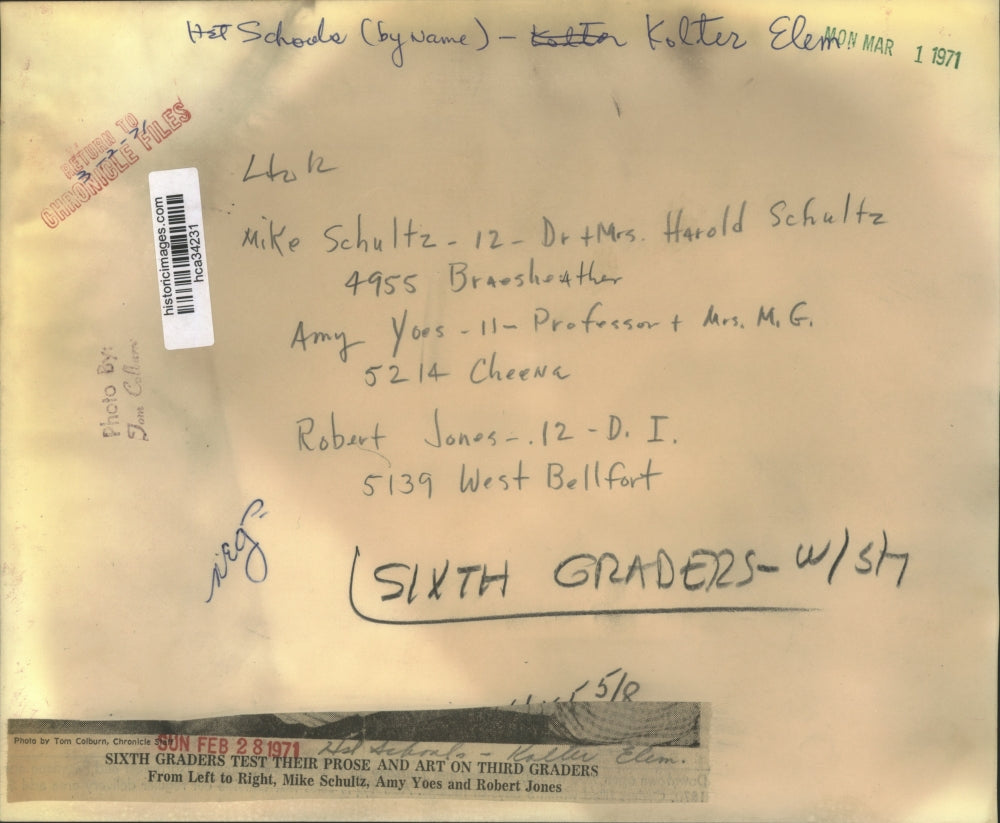 Hst Schools (by name) - Kolter Elem
MON MAR 1 1971
RETURN TO
3-2-71
CHRONICLE FILES
historicimages.com
hca34231
L to R
Mike Schultz - 12 - Dr + Mrs. Harold Schultz
4955 Braesheather
Amy Yoes - 11 - Professor + Mrs. M. G.
5214 Cheena
Robert Jones - 12 - D. I.
5139 West Bellfort
Photo By:
Tom Colburn
neg
SIXTH GRADERS - W/SH
5/8
Photo by Tom Colburn, Chronicle Staff
SUN FEB 28 1971
Hst Schools - Kolter Elem.
SIXTH GRADERS TEST THEIR PROSE AND ART ON THIRD GRADERS
From Left to Right, Mike Schultz, Amy Yoes and Robert Jones